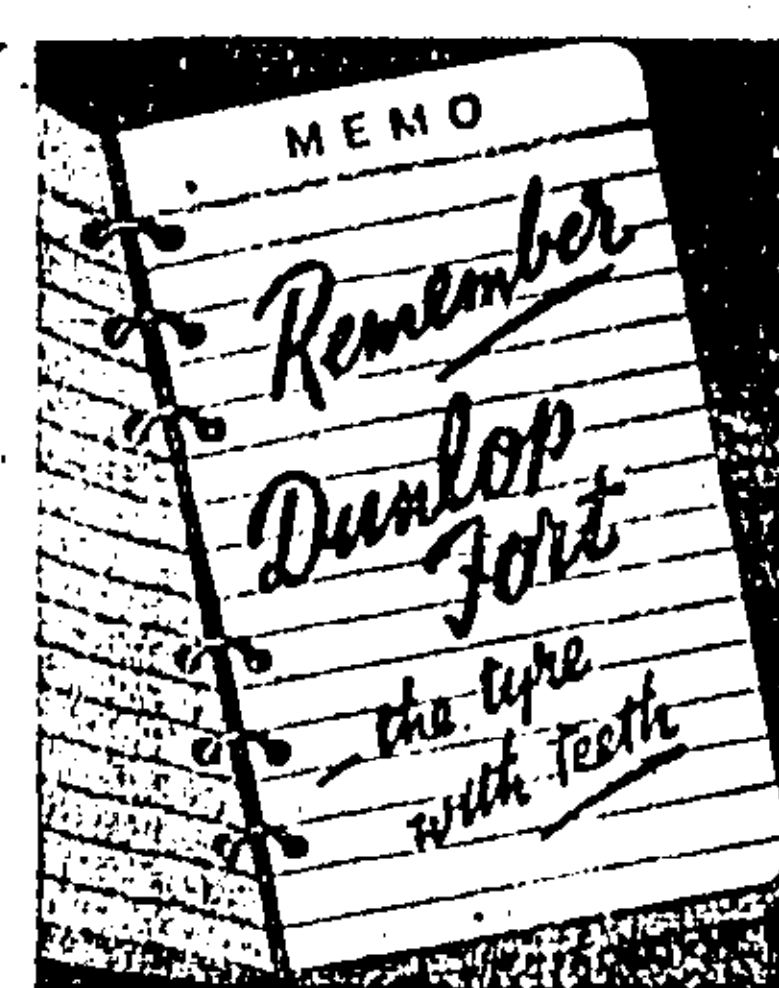 MEMO
Remember
Dunlop
Fort
– the tyre
with teeth